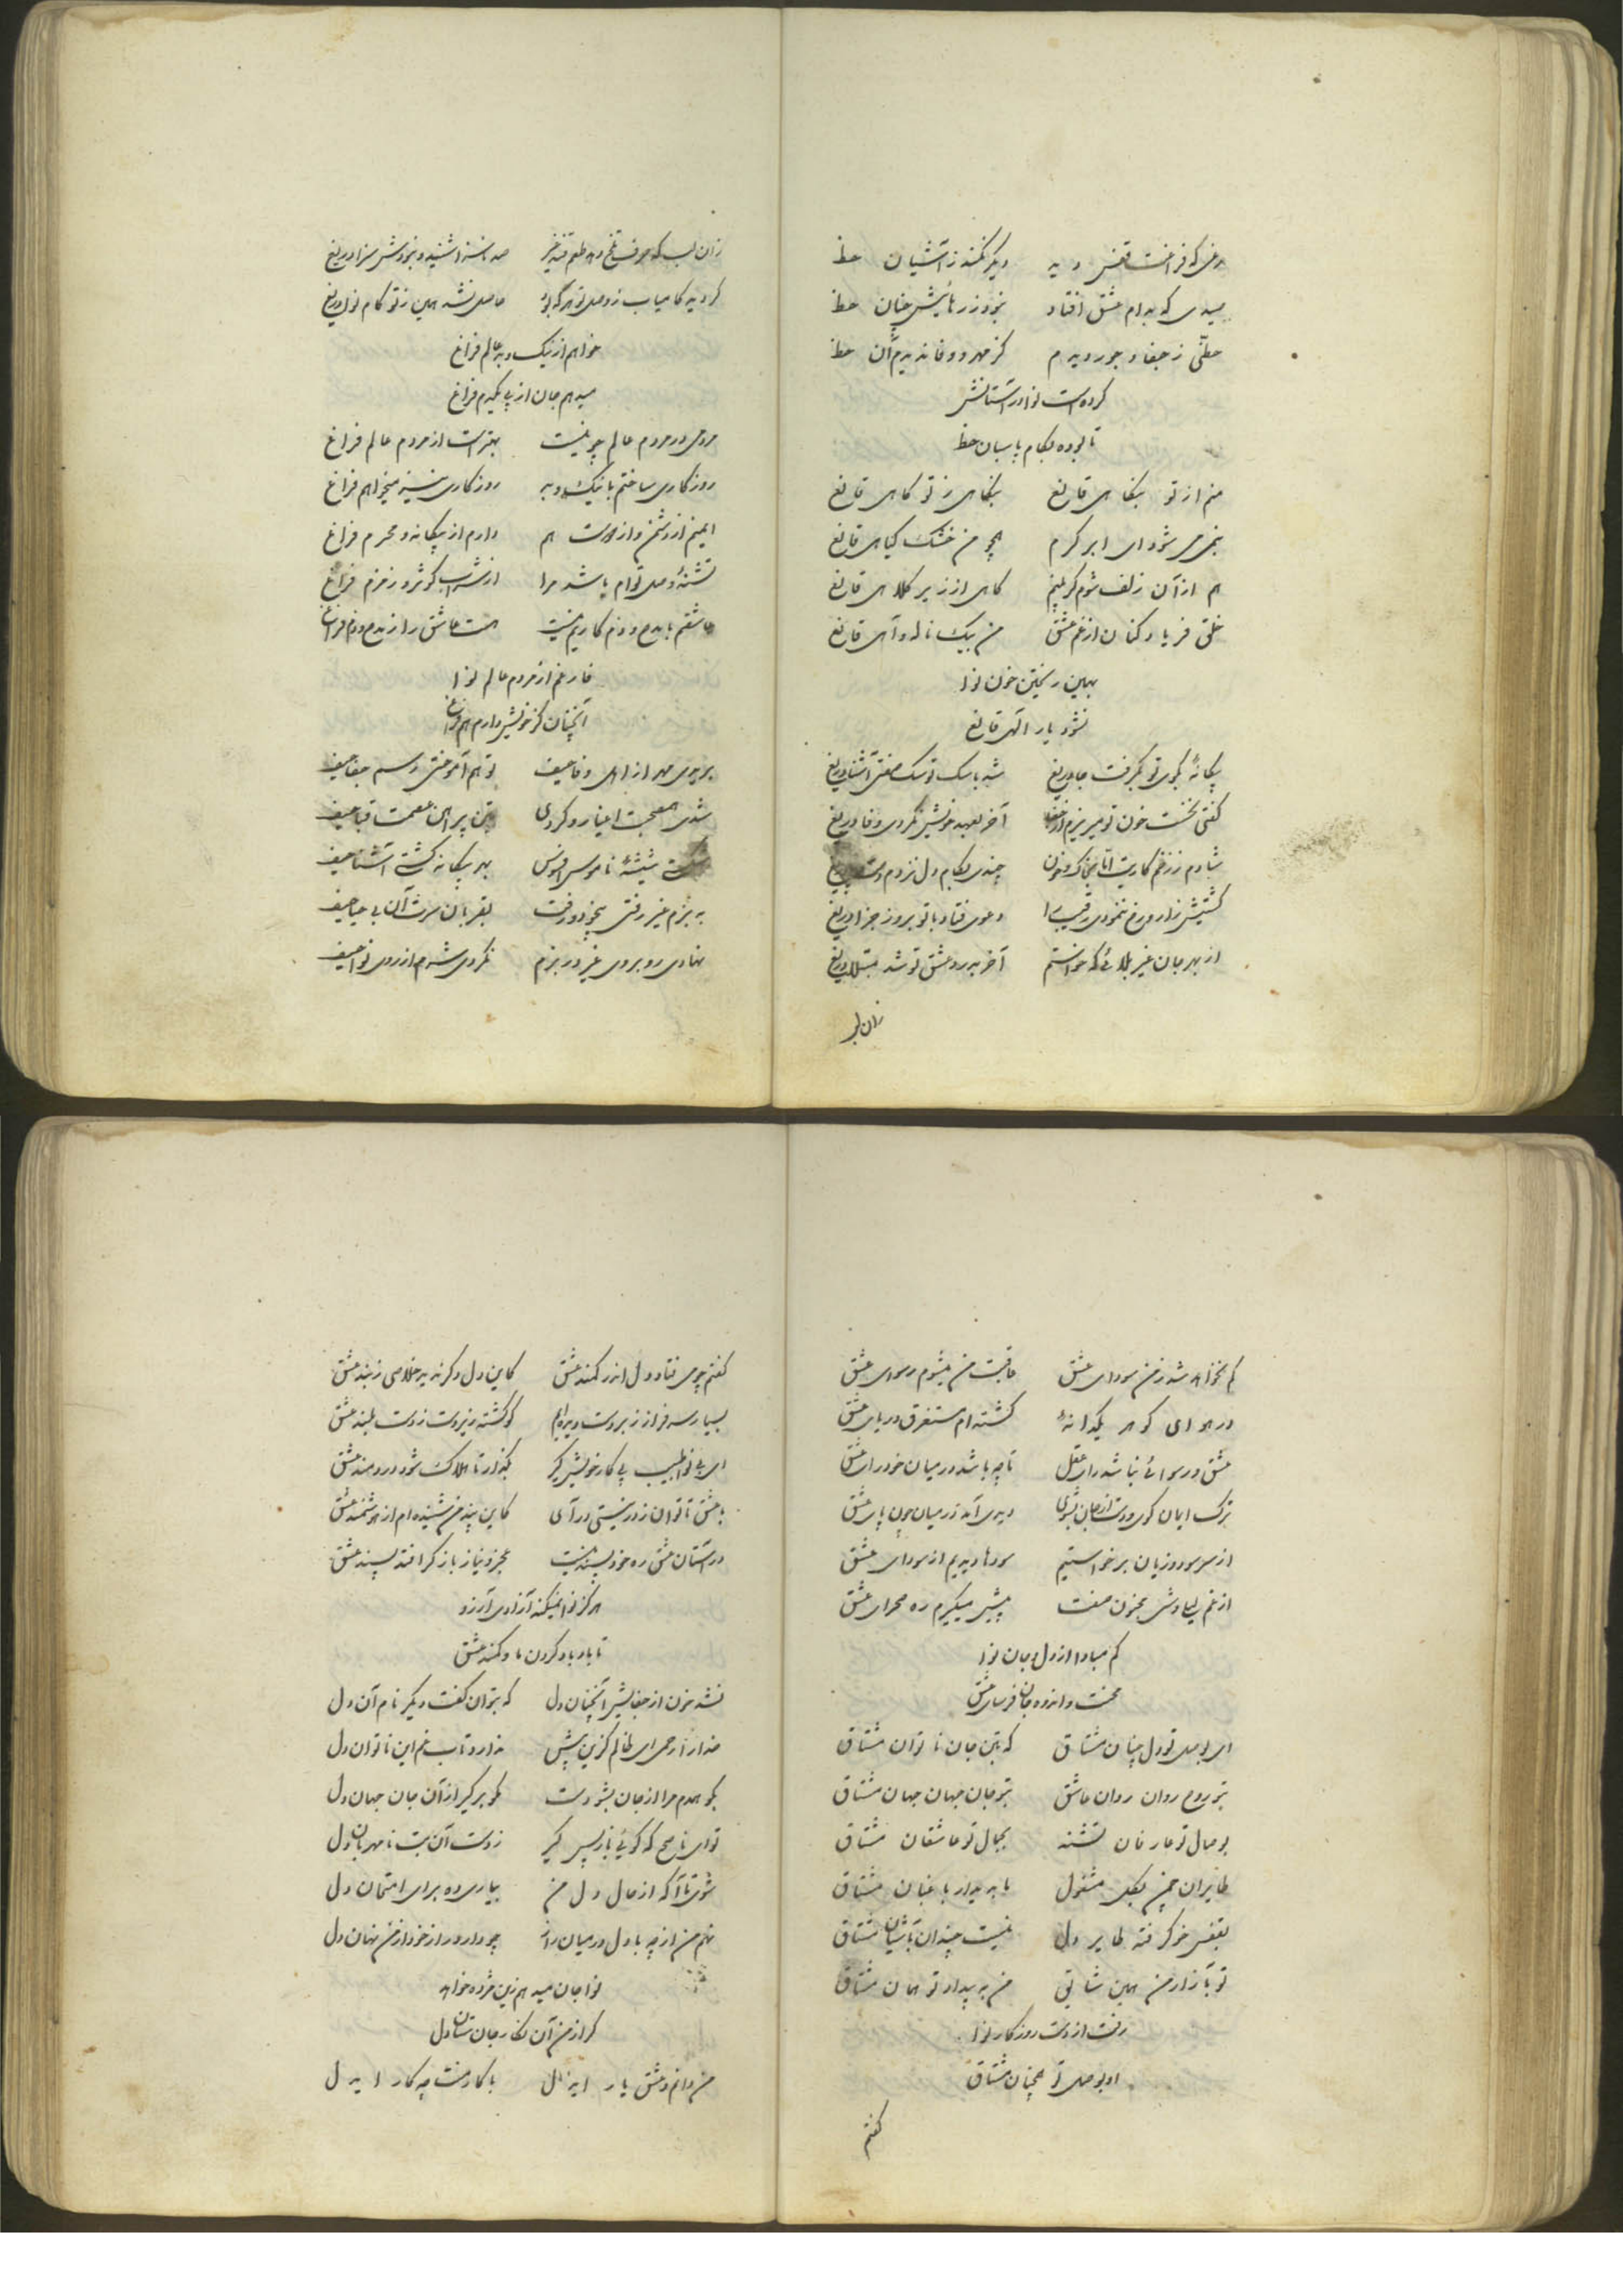 مرغی که فراغت قفس دیده دیگر نکند ز آشیان حظ
صیدی که بدام عشق افتاد نبود ز رهائیش چنان حظ
حظّی ز جفا و جور دیدم کز مهر و وفا ندیدم آن حظ
کرده است نوا در آستانش
نابوده بکام پاسبان حظ
منم از تو بنگاهی قانع بنگاهی ز تو گاهی قانع
بنمی می شود ای ابر کرم همچو من خشک گیاهی قانع
هم از آن زلف شوم گر بینم گاهی از زیر کلاهی قانع
خلق فریاد کنان از غم عشق من بیک ناله و آهی قانع
بهمین ریختن خون نوا
نشود یار الهی قانع
بیگانهٔ بکوی تو بگرفت جا دریغ شد با سگ تو سگ صفتی آشنا دریغ
گفتی نخست خون تو میریزم از جفا آخر بعهد خویش نکردی وفا دریغ
شادم ز زخم کاریت اما بخاک و خون چندی بکام دل نزدم دست و پا دریغ
کشتیش زار و رخ ننمودی رقیب را دعوی فتاد با تو بروز جزا دریغ
از بهر جان غیر بلائی که خواستم آخر بدرد عشق تو شد مبتلا دریغ
زان لب
زان لب که حرف تلخ دهد طعم قند غیر صد ناسزا شنید و نبودش سزا دریغ
گردیده کامیاب ز وصل تو هر که بود حاصل نشد همین ز تو کام نوا دریغ
خواهم از نیک و بد عالم فراغ
میدهم جان از پی یکدم فراغ
مردمی در مردم عالم چو نیست بهتر است از مردم عالم فراغ
روزگاری ساختم با نیک و بد روزگاری نیز میخواهم فراغ
ایمنم از دشمن و از دوست هم دارم از بیگانه و محرم فراغ
تشنهٔ وصل توام باشد مرا از شراب کوثر و زمزم فراغ
عاشقم با مدح و ذم کاریم نیست هست عاشق را ز مدح و ذم فراغ
فارغم از مردم عالم نوا
آنچنان کز خویش دارم هم فراغ
بریدی مهر از اهل وفا حیف تو هم آموختی رسم جفا حیف
شدی همصحبت اغیار و کردی بتن پیراهن عصمت قبا حیف
شکست شیشهٔ ناموس افسوس بهر بیگانه گشتی آشنا حیف
به بزم غیر رفتی بیخود و رفت بقربان سرت آن بی حیا حیف
نهادی رو بروی غیر در بزم نکردی شرم از روی نوا حیف
کم نخواهد شد ز من سودای عشق عاقبت من میشوم رسوای عشق
در هوای گوهر یکدانهٔ گشته ام مستغرق دریای عشق
عشق و رسوائی نباشد رای عقل تا چه باشد در میان خود رای عشق
ترک ایمان گوی و دست از جان بشوی دیدی آمد در میان چون پای عشق
از سر سود و زیان برخواستیم سودها دیدیم از سودای عشق
از غم لیلاوشی مجنون صفت پیش میگیرم ره صحرای عشق
کم مبادا از دل و جان نوا
محنت و اندوه جان فرسای عشق
ای بوصل تو دل چنان مشتاق که بتن جان ناتوان مشتاق
بتو روح روان روان عاشق بتو جان جهان جهان مشتاق
بوصال تو عارفان تشنه بجمال تو عاشقان مشتاق
طایران چمن بگل مشغول ما بدیدار باغبان مشتاق
بقفس خو گرفته طایر دل نیست چندان بآشیان مشتاق
تو بآزار من همین شایق من به بیداد تو همان مشتاق
رفت از دست روزگار نوا
او بوصل تو همچنان مشتاق
گفتم
گفتم چو می فتاد دل اندر کمند عشق کاین دل دگر ندید خلاصی ز بند عشق
بسیار سرفراز زبردست دیده ایم کو گشته زیردست ز دست بلند عشق
ای بی نوا طبیب پی کار خویش گیر بگذار تا هلاک شود دردمند عشق
با عشق تا توان ز در نیستی درآی کاین پند من شنیده ام از هوشمند عشق
در آستان عشق ره خودپسند نیست عجز و نیاز باز گر افتد پسند عشق
هرگز نوا نمیکند آزادی آرزو
تا باد باد گردن ما و کمند عشق
نشد خون از جفایش آنچنان دل که بتوان گفت دیگر نام آن دل
خدا را رحمی ای ظالم کزین بیش ندارد تاب غم این ناتوان دل
بگو همدم مرا از جان بشو دست مگو برگیر از آن جان جهان دل
تو ای ناصح که گوئی باز پس گیر ز دست آن بت نامهربان دل
شوی تا آگه از حال دل من بیاری ده برای امتحان دل
نهم من از چه با دل در میان راز چو دارد راز خود از من نهان دل
نوا جان میدهم زین مژده خواهد
گر از من آن نگار جان ستان دل
من دانم و عشق یار ایدل با کار منت چه کار ایدل